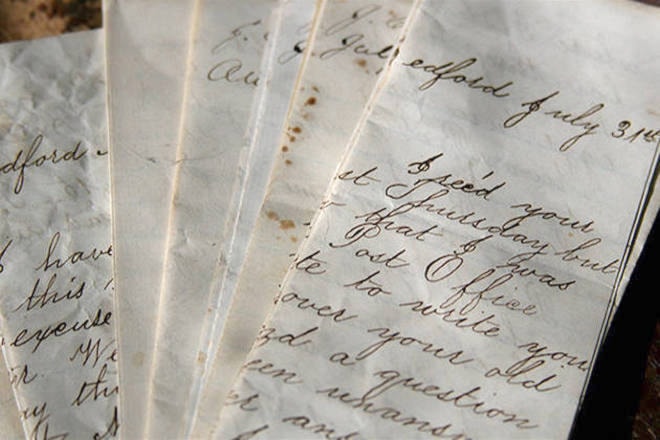 dford
have
this
excuse
We
J.
Au
J. July
edford July 31st
I rec'd your
st Thursday but
that I was
Post Office
te to write you
over your old
a question
een unans